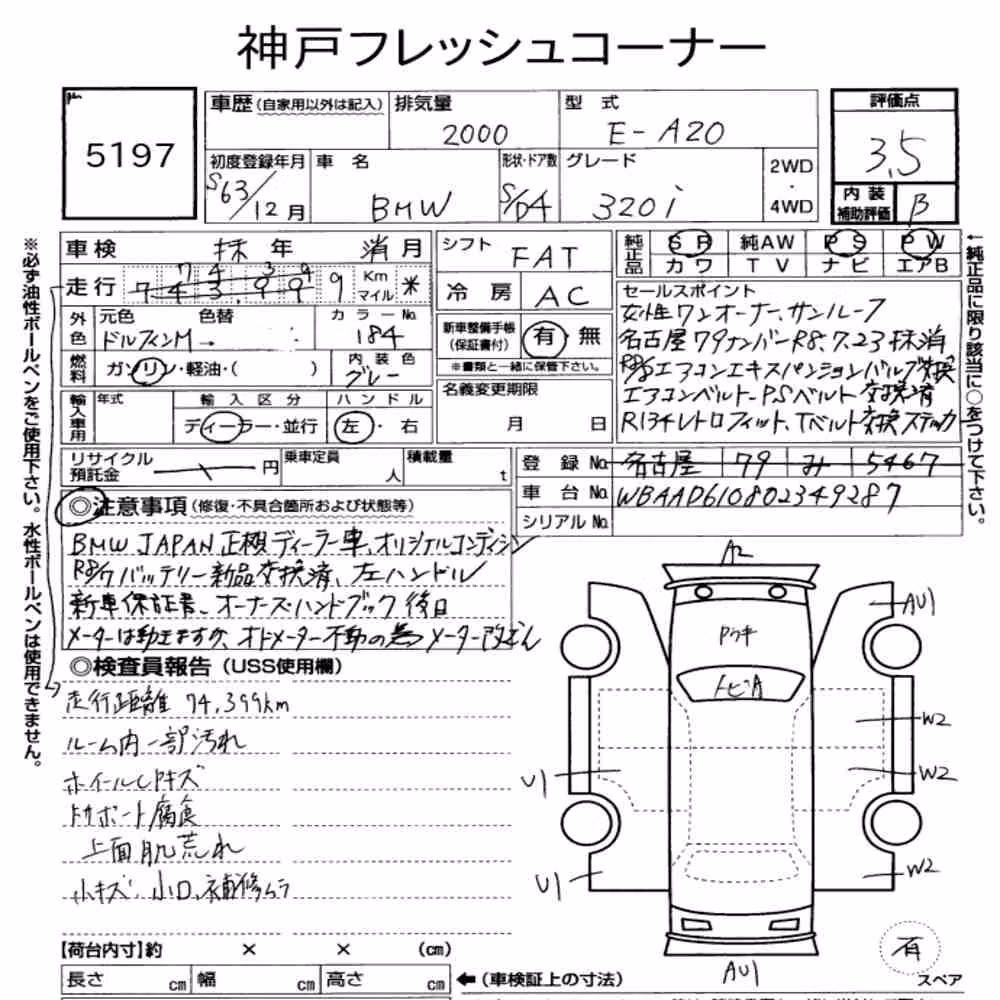 神戸フレッシュコーナー
5197
車歴(自家用以外は記入)
排気量
2000
型式
E-A20
評価点
3.5
内装
補助評価
B
初度登録年月
S63/12月
車名
BMW
形状・ドア数
S/D4
グレード
320i
2WD
・
4WD
車検 抹年 消月
走行 743.999 Km マイル
74 39
シフト
FAT
冷房
AC
純正品
SR 純AW PS PW
カワ TV ナビ エアB
外色
元色 色替
ドルフィンM→
カラーNo.
184
燃料
ガソリン・軽油・( )
内装色
グレー
新車整備手帳
(保証書付)
有・無
※書類と一緒に保管下さい。
輸入車用
年式
輸入区分
ディーラー・並行
ハンドル
左・右
名義変更期限
月 日
セールスポイント
女性ワンオーナー、サンルーフ
名古屋79ナンバーR8.7.23抹消
R8/8エアコンエキスパンションバルブ交換
エアコンベルト-PSベルト交換済
R134レトロフィット、Tベルト交換ステッカ
リサイクル
預託金
円
乗車定員
人
積載量
t
登録No. 名古屋 79 み 5467
車台No. WBAAD610802349287
シリアルNo.
◎注意事項(修復・不具合箇所および状態等)
BMW JAPAN正規ディーラー車、オリジナルコンディション
R8/7バッテリー新品交換済、左ハンドル
新車保証書、オーナーズ・ハンドブック後日
メーターは動きますが、オドメーター不動の為メーター改ざん
◎検査員報告(USS使用欄)
走行距離 74,399km
ルーム内一部汚れ
ホイールCPキズ
下サポート腐食
上面肌荒れ
小キズ、小凹、補修ムラ
A2
AU1
トビA
W2
W2
W2
U1
U1
AU1
有
スペア
【荷台内寸】約 × × (cm)
長さ cm 幅 cm 高さ cm
←(車検証上の寸法)
※必ず油性ボールペンをご使用下さい。水性ボールペンは使用できません。
←純正品に限り該当に○をつけて下さい。